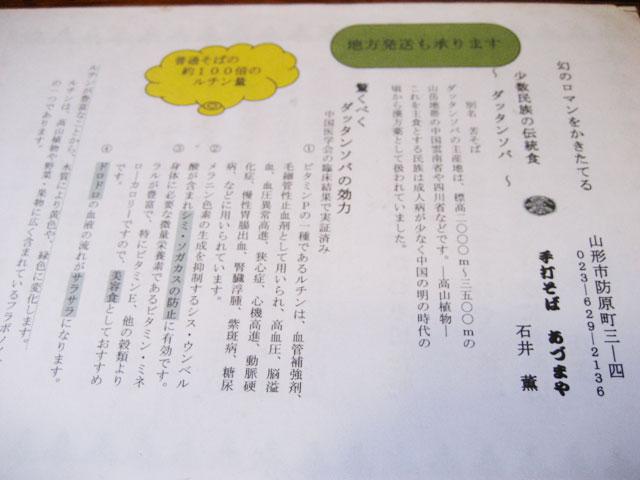 幻のロマンをかきたてる
少数民族の伝統食
～ ダッタンソバ ～
山形市防原町三―四
023―629―2136
手打そば あづまや
石井 薫
地方発送も承ります
別名 苦そば
ダッタンソバの主産地は、標高二〇〇〇m～三五〇〇mの
山岳地帯の中国雲南省や四川省などです。―高山植物―
これを主食とする民族は成人病が少なく中国の明の時代の
頃から漢方薬として扱われていました。
驚くべく
ダッタンソバの効力
中国医学会の臨床結果で実証済み
普通そばの
約100倍の
ルチン量
① ビタミンPの一種であるルチンは、血管補強剤、
毛細管性止血剤として用いられ、高血圧、脳溢
血、血圧異常高進、狭心症、心機高進、動脈硬
化症、慢性胃腸出血、腎臓浮腫、紫斑病、糖尿
病、などに用いられています。
② メラニン色素の生成を抑制するシス・ウンベル
酸が含まれシミ・ソガカスの防止に有効です。
③ 身体に必要な微量栄養素であるビタミン・ミネ
ラルが豊富で、特にビタミンE、他の穀類より
ローカロリーですので、美容食としておすすめ
です。
④ ドロドロの血液の流れがサラサラになります。
ルチンが豊富なことから、水質により黄色や、緑色に変化します。
ルチンは、高山植物や野菜・果物に広く含まれているフラボノイ
の一つであります。